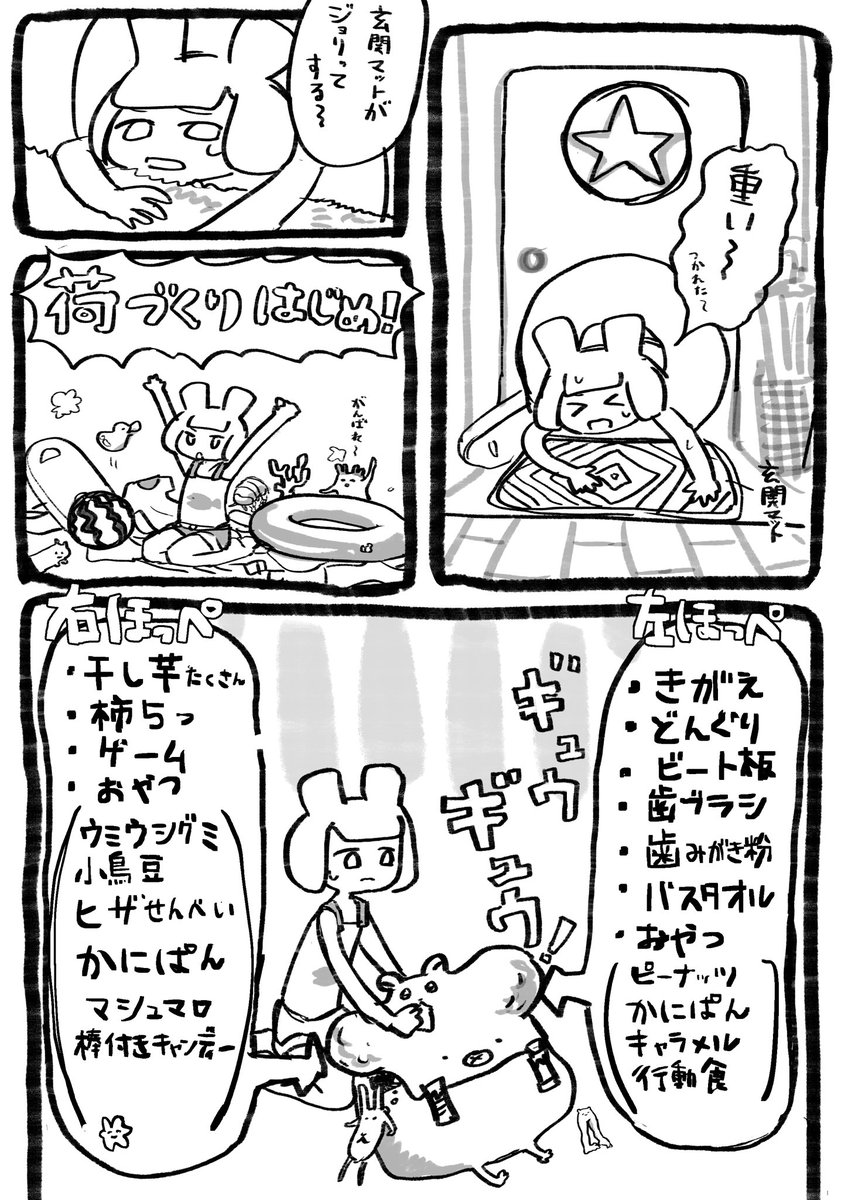 重い〜
つかれた〜
玄関マット
玄関マットが
ジョリって
する〜
荷づくりはじめ!
がんばれ〜
左ほっぺ
・きがえ
・どんぐり
・ビート板
・歯ブラシ
・歯みがき粉
・バスタオル
・おやつ
(ピーナッツ
かにぱん
キャラメル
行動食)
ギュウ
ギュウ
!
右ほっぺ
・干し芋たくさん
・柿らっ
・ゲーム
・おやつ
(ウミウシグミ
小鳥豆
ヒザせんべい
かにぱん
マシュマロ
棒付きキャンディー)